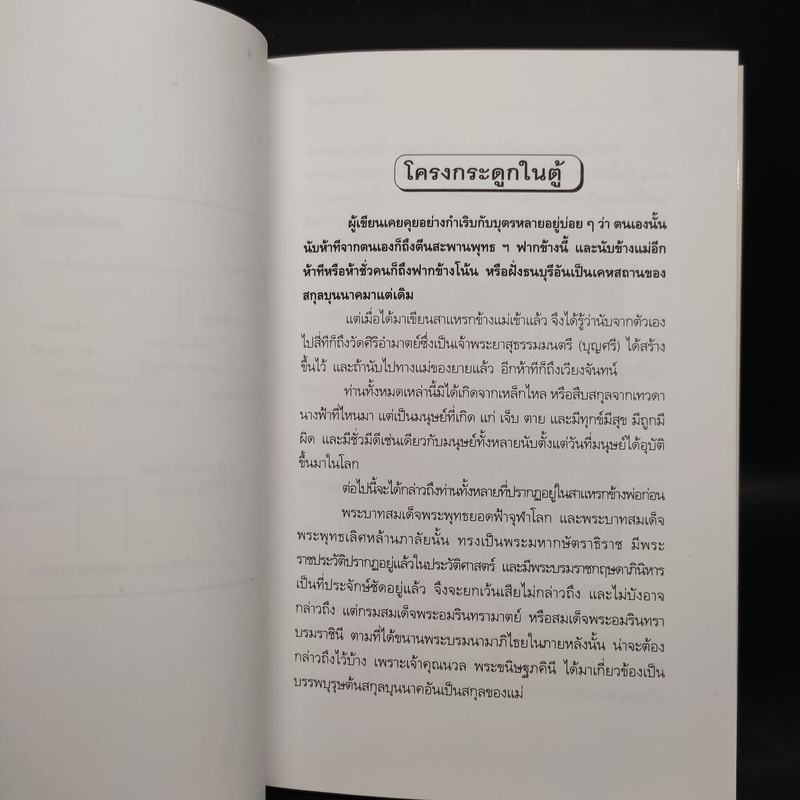 โครงกระดูกในตู้
ผู้เขียนเคยคุยอย่างกำเริบกับบุตรหลายอยู่บ่อย ๆ ว่า ตนเองนั้น
นับห้าทีจากตนเองก็ถึงตีนสะพานพุทธ ฯ ฟากข้างนี้ และนับข้างแม่อีก
ห้าทีหรือห้าชั่วคนก็ถึงฟากข้างโน้น หรือฝั่งธนบุรีอันเป็นเคหสถานของ
สกุลบุนนาคมาแต่เดิม
แต่เมื่อได้มาเขียนสาแหรกข้างแม่เข้าแล้ว จึงได้รู้ว่านับจากตัวเอง
ไปสี่ทีก็ถึงวัดศิริอำมาตย์ซึ่งเป็นเจ้าพระยาสุธรรมมนตรี (บุญศรี) ได้สร้าง
ขึ้นไว้ และถ้านับไปทางแม่ของยายแล้ว อีกห้าทีก็ถึงเวียงจันทน์
ท่านทั้งหมดเหล่านี้มิได้เกิดจากเหล็กไหล หรือสืบสกุลจากเทวดา
นางฟ้าที่ไหนมา แต่เป็นมนุษย์ที่เกิด แก่ เจ็บ ตาย และมีทุกข์มีสุข มีถูกมี
ผิด และมีชั่วมีดีเช่นเดียวกับมนุษย์ทั้งหลายนับตั้งแต่วันที่มนุษย์ได้อุบัติ
ขึ้นมาในโลก
ต่อไปนี้จะได้กล่าวถึงท่านทั้งหลายที่ปรากฏอยู่ในสาแหรกข้างพ่อก่อน
พระบาทสมเด็จพระพุทธยอดฟ้าจุฬาโลก และพระบาทสมเด็จ
พระพุทธเลิศหล้านภาลัยนั้น ทรงเป็นพระมหากษัตราธิราช มีพระ
ราชประวัติปรากฏอยู่แล้วในประวัติศาสตร์ และมีพระบรมราชกฤษดาภินิหาร
เป็นที่ประจักษ์ชัดอยู่แล้ว จึงจะยกเว้นเสียไม่กล่าวถึง และไม่บังอาจ
กล่าวถึง แต่กรมสมเด็จพระอมรินทรามาตย์ หรือสมเด็จพระอมรินทรา
บรมราชินี ตามที่ได้ขนานพระบรมนามาภิไธยในภายหลังนั้น น่าจะต้อง
กล่าวถึงไว้บ้าง เพราะเจ้าคุณนวล พระขนิษฐภคินี ได้มาเกี่ยวข้องเป็น
บรรพบุรุษต้นสกุลบุนนาคอันเป็นสกุลของแม่